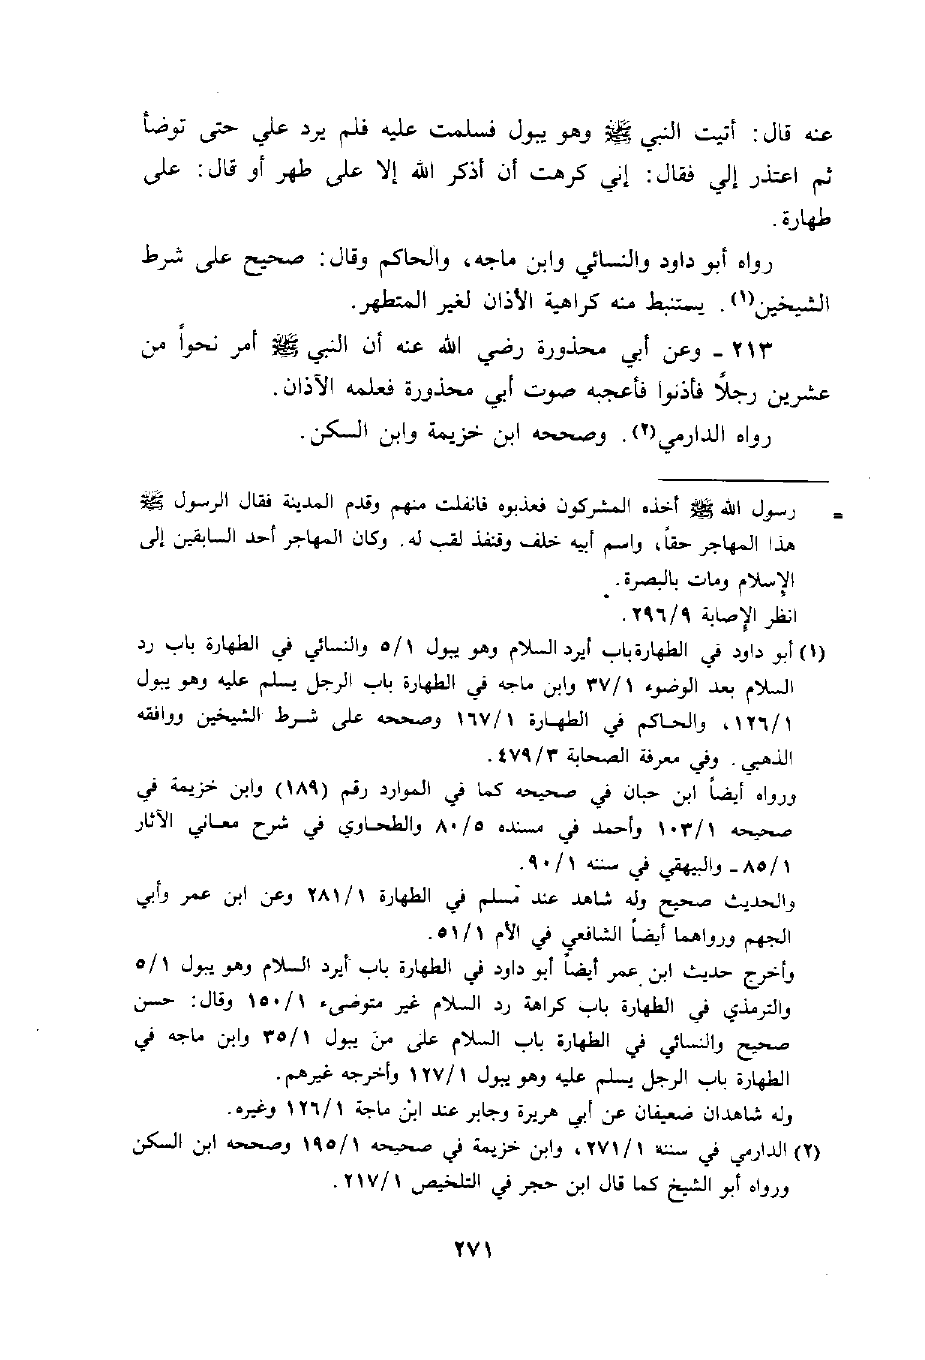 عنه قال: أتيت النبي ﷺ وهو يبول فسلمت عليه فلم يرد علي حتى توضأ
ثم اعتذر إلي فقال: إني كرهت أن أذكر الله إلا على طهر أو قال: على
طهارة.
رواه أبو داود والنسائي وابن ماجه، والحاكم وقال: صحيح على شرط
الشيخين(١). يستنبط منه كراهية الأذان لغير المتطهر.
٢١٣ - وعن أبي محذورة رضي الله عنه أن النبي ﷺ أمر نحواً من
عشرين رجلاً فأذنوا فأعجبه صوت أبي محذورة فعلمه الآذان.
رواه الدارمي(٢). وصححه ابن خزيمة وابن السكن.
= رسول الله ﷺ أخذه المشركون فعذبوه فانفلت منهم وقدم المدينة فقال الرسول ﷺ
هذا المهاجر حقاً، واسم أبيه خلف وقنفذ لقب له. وكان المهاجر أحد السابقين إلى
الإسلام ومات بالبصرة.
انظر الإصابة ٢٩٦/٩.
(١) أبو داود في الطهارة باب أيرد السلام وهو يبول ٥/١ والنسائي في الطهارة باب رد
السلام بعد الوضوء ٣٧/١ وابن ماجه في الطهارة باب الرجل يسلم عليه وهو يبول
١٢٦/١، والحاكم في الطهارة ١٦٧/١ وصححه على شرط الشيخين ووافقه
الذهبي. وفي معرفة الصحابة ٤٧٩/٣.
ورواه أيضاً ابن حبان في صحيحه كما في الموارد رقم (١٨٩) وابن خزيمة في
صحيحه ١٠٣/١ وأحمد في مسنده ٨٠/٥ والطحاوي في شرح معاني الآثار
٨٥/١ - والبيهقي في سننه ٩٠/١.
والحديث صحيح وله شاهد عند مسلم في الطهارة ٢٨١/١ وعن ابن عمر وأبي
الجهم ورواهما أيضاً الشافعي في الأم ٥١/١.
وأخرج حديث ابن عمر أيضاً أبو داود في الطهارة باب أيرد السلام وهو يبول ٥/١
والترمذي في الطهارة باب كراهة رد السلام غير متوضىء ١٥٠/١ وقال: حسن
صحيح والنسائي في الطهارة باب السلام على من يبول ٣٥/١ وابن ماجه في
الطهارة باب الرجل يسلم عليه وهو يبول ١٢٧/١ وأخرجه غيرهم.
وله شاهدان ضعيفان عن أبي هريرة وجابر عند ابن ماجة ١٢٦/١ وغيره.
(٢) الدارمي في سننه ٢٧١/١، وابن خزيمة في صحيحه ١٩٥/١ وصححه ابن السكن
ورواه أبو الشيخ كما قال ابن حجر في التلخيص ٢١٧/١.
٢٧١